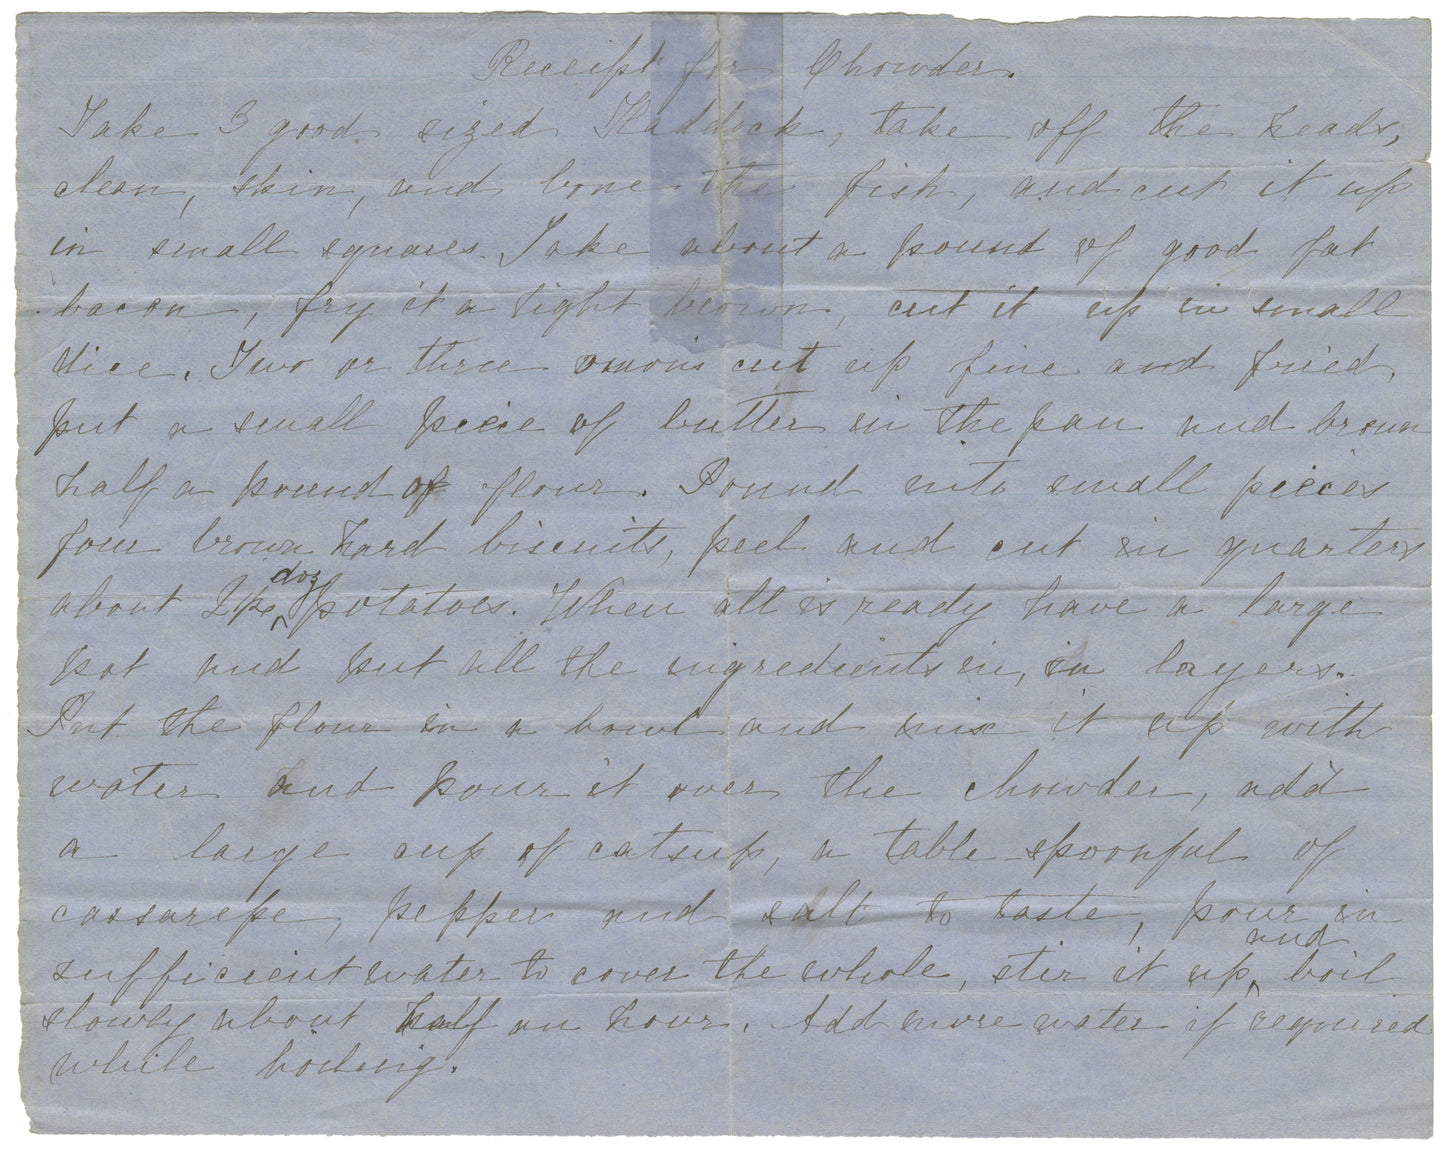 Receipt for Chowder.
Take 3 good sized Haddock, take off the heads,
clean, skin, and bone the fish, and cut it up
in small squares. Take about a pound of good fat
bacon, fry it a light brown, cut it up in small
dice. Two or three onions cut up fine and fried,
put a small piece of butter in the pan and brown
half a pound of flour. Pound into small pieces
four brown hard biscuits, peel and cut in quarters
doz
about 1½ potatoes. When all is ready have a large
pot and put all the ingredients in, in layers.
Put the flour in a bowl and mix it up with
water and pour it over the chowder, add
a large cup of catsup, a table spoonful of
cassarepe, pepper and salt to taste, pour in
and
sufficient water to cover the whole, stir it up, boil
slowly about half an hour. Add more water if required
while boiling.